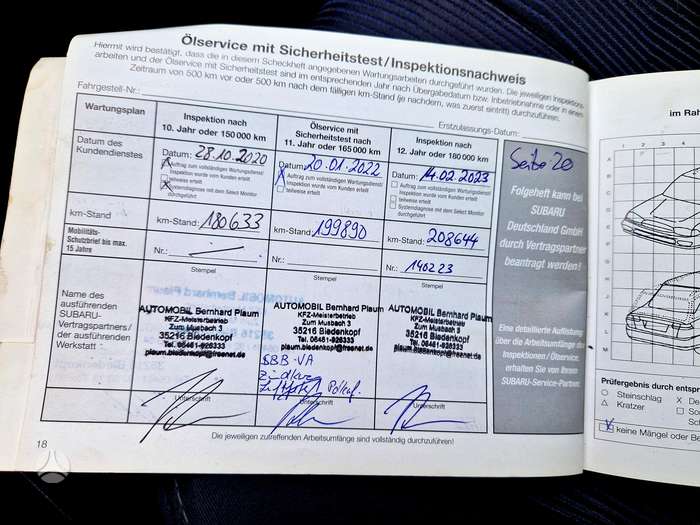 Ölservice mit Sicherheitstest/Inspektionsnachweis
Hiermit wird bestätigt, dass die in diesem Scheckheft angegebenen Wartungsarbeiten durchgeführt wurden. Die jeweiligen Inspektions-
arbeiten und der Ölservice mit Sicherheitstest sind im entsprechenden Jahr nach Übergabedatum bzw. Inbetriebnahme oder in einem
Zeitraum von 500 km vor oder 500 km nach dem fälligen km-Stand (je nachdem, was zuerst eintritt) durchzuführen.
Fahrgestell-Nr.:
Erstzulassungs-Datum:
Wartungsplan
Inspektion nach
10. Jahr oder 150 000 km
Ölservice mit
Sicherheitstest nach
11. Jahr oder 165 000 km
Inspektion nach
12. Jahr oder 180 000 km
Seite 20
Datum des
Kundendienstes
Datum: 28.10.2020
X Auftrag zum vollständigen Wartungsdienst/
Inspektion wurde vom Kunden erteilt
teilweise erteilt
X Systemdiagnose mit dem Select Monitor
durchgeführt
Datum: 20.01.2022
X Auftrag zum vollständigen Wartungsdienst/
Inspektion wurde vom Kunden erteilt
teilweise erteilt
Datum: 14.02.2023
Auftrag zum vollständigen Wartungsdienst/
Inspektion wurde vom Kunden erteilt
teilweise erteilt
Systemdiagnose mit dem Select Monitor
durchgeführt
Folgeheft kann bei
SUBARU
Deutschland GmbH
durch Vertragspartner
beantragt werden!
km-Stand
km-Stand: 180633
km-Stand: 199890
km-Stand: 208644
Mobilitäts-
Schutzbrief bis max.
15 Jahre
Nr.:
Nr.:
Nr.: 140223
Stempel
Stempel
Stempel
Name des
ausführenden
SUBARU-
Vertragspartners/
der ausführenden
Werkstatt
AUTOMOBIL Bernhard Plaum
KFZ-Meisterbetrieb
Zum Musbach 3
35216 Biedenkopf
Tel. 06461-926333
plaum.biedenkopf@freenet.de
AUTOMOBIL Bernhard Plaum
KFZ-Meisterbetrieb
Zum Musbach 3
35216 Biedenkopf
Tel. 06461-926333
plaum.biedenkopf@freenet.de
AUTOMOBIL Bernhard Plaum
KFZ-Meisterbetrieb
Zum Musbach 3
35216 Biedenkopf
Tel. 06461-926333
plaum.biedenkopf@freenet.de
Eine detaillierte Auflistung
über die Arbeitsumfänge der
Inspektionen / Ölservice,
erhalten Sie von Ihrem
SUBARU-Service-Partner.
Unterschrift
Unterschrift
Unterschrift
Die jeweiligen zutreffenden Arbeitsumfänge sind vollständig durchzuführen!
18
im Rah
A
B
C
D
E
F
G
H
I
K
L
M
Prüfergebnis durch entspr
Steinschlag
X De
Kratzer
keine Mängel oder Be